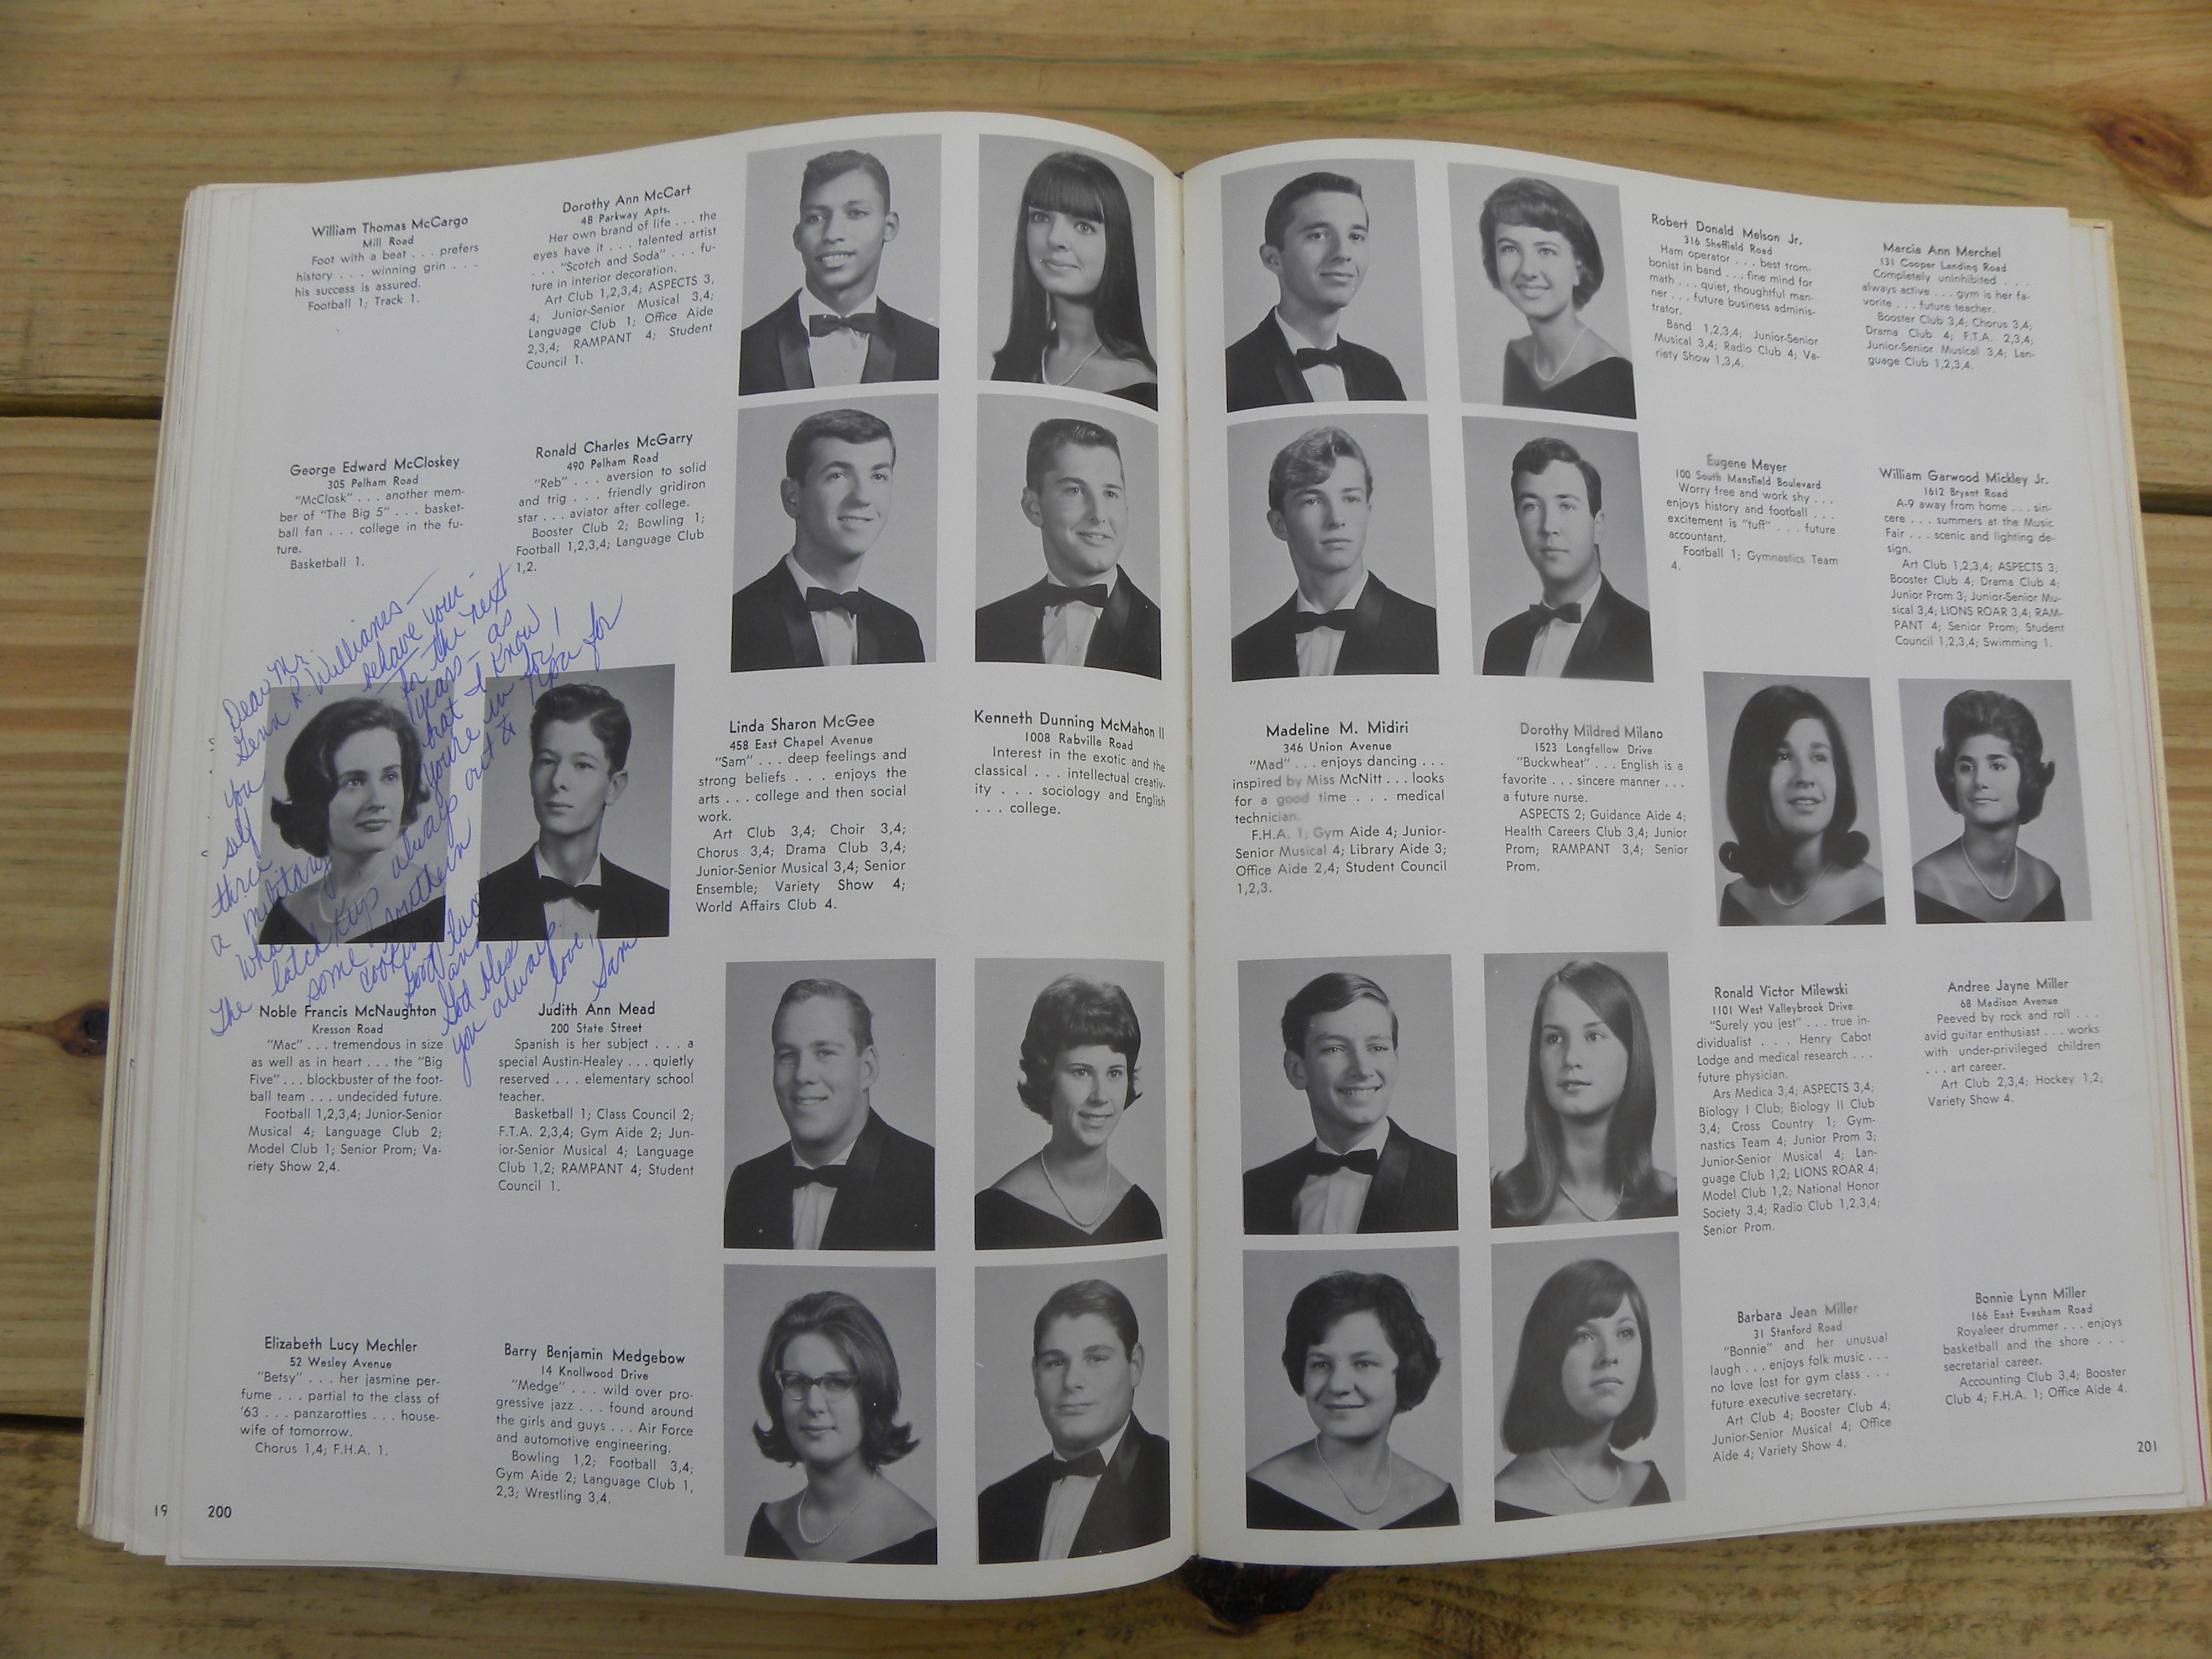 William Thomas McCargo
Mill Road
Foot with a beat . . . prefers
history . . . winning grin . . .
his success is assured.
Football 1; Track 1.
Dorothy Ann McCart
4B Parkway Apts.
Her own brand of life . . . the
eyes have it . . . talented artist
. . . "Scotch and Soda" . . . fu-
ture in interior decoration.
Art Club 1,2,3,4; ASPECTS 3,
4; Junior-Senior Musical 3,4;
Language Club 1; Office Aide
2,3,4; RAMPANT 4; Student
Council 1.
George Edward McCloskey
305 Pelham Road
"McClosk" . . . another mem-
ber of "The Big 5" . . . basket-
ball fan . . . college in the fu-
ture.
Basketball 1.
Ronald Charles McGarry
490 Pelham Road
"Reb" . . . aversion to solid
and trig . . . friendly gridiron
star . . . aviator after college.
Booster Club 2; Bowling 1;
Football 1,2,3,4; Language Club
1,2.
Dear Mr.
Genn R. Willianes —
you behave your-
self for the next
three years — as
a military
what
The latch
keep always out & for
some southern
cooking
Good luck
and
God bless
you always.
love,
Sam
Linda Sharon McGee
458 East Chapel Avenue
"Sam" . . . deep feelings and
strong beliefs . . . enjoys the
arts . . . college and then social
work.
Art Club 3,4; Choir 3,4;
Chorus 3,4; Drama Club 3,4;
Junior-Senior Musical 3,4; Senior
Ensemble; Variety Show 4;
World Affairs Club 4.
Kenneth Dunning McMahon II
1008 Rabville Road
Interest in the exotic and the
classical . . . intellectual creativ-
ity . . . sociology and English
. . . college.
Noble Francis McNaughton
Kresson Road
"Mac" . . . tremendous in size
as well as in heart . . . the "Big
Five" . . . blockbuster of the foot-
ball team . . . undecided future.
Football 1,2,3,4; Junior-Senior
Musical 4; Language Club 2;
Model Club 1; Senior Prom; Va-
riety Show 2,4.
Judith Ann Mead
200 State Street
Spanish is her subject . . . a
special Austin-Healey . . . quietly
reserved . . . elementary school
teacher.
Basketball 1; Class Council 2;
F.T.A. 2,3,4; Gym Aide 2; Jun-
ior-Senior Musical 4; Language
Club 1,2; RAMPANT 4; Student
Council 1.
Elizabeth Lucy Mechler
52 Wesley Avenue
"Betsy" . . . her jasmine per-
fume . . . partial to the class of
'63 . . . panzarotties . . . house-
wife of tomorrow.
Chorus 1,4; F.H.A. 1.
Barry Benjamin Medgebow
14 Knollwood Drive
"Medge" . . . wild over pro-
gressive jazz . . . found around
the girls and guys . . . Air Force
and automotive engineering.
Bowling 1,2; Football 3,4;
Gym Aide 2; Language Club 1,
2,3; Wrestling 3,4.
19
200
Robert Donald Melson Jr.
316 Sheffield Road
Ham operator . . . best trom-
bonist in band . . . fine mind for
math . . . quiet, thoughtful man-
ner . . . future business adminis-
trator.
Band 1,2,3,4; Junior-Senior
Musical 3,4; Radio Club 4; Va-
riety Show 1,3,4.
Marcia Ann Merchel
131 Cooper Landing Road
Completely uninhibited . . .
always active . . . gym is her fa-
vorite . . . future teacher.
Booster Club 3,4; Chorus 3,4;
Drama Club 4; F.T.A. 2,3,4;
Junior-Senior Musical 3,4; Lan-
guage Club 1,2,3,4.
Eugene Meyer
100 South Mansfield Boulevard
Worry free and work shy . . .
enjoys history and football . . .
excitement is "tuff" . . . future
accountant.
Football 1; Gymnastics Team
4.
William Garwood Mickley Jr.
1612 Bryant Road
A-9 away from home . . . sin-
cere . . . summers at the Music
Fair . . . scenic and lighting de-
sign.
Art Club 1,2,3,4; ASPECTS 3;
Booster Club 4; Drama Club 4;
Junior Prom 3; Junior-Senior Mu-
sical 3,4; LIONS ROAR 3,4; RAM-
PANT 4; Senior Prom; Student
Council 1,2,3,4; Swimming 1.
Madeline M. Midiri
346 Union Avenue
"Mad" . . . enjoys dancing . . .
inspired by Miss McNitt . . . looks
for a good time . . . medical
technician.
F.H.A. 1; Gym Aide 4; Junior-
Senior Musical 4; Library Aide 3;
Office Aide 2,4; Student Council
1,2,3.
Dorothy Mildred Milano
1523 Longfellow Drive
"Buckwheat" . . . English is a
favorite . . . sincere manner . . .
a future nurse.
ASPECTS 2; Guidance Aide 4;
Health Careers Club 3,4; Junior
Prom; RAMPANT 3,4; Senior
Prom.
Ronald Victor Milewski
1101 West Valleybrook Drive
"Surely you jest" . . . true in-
dividualist . . . Henry Cabot
Lodge and medical research . . .
future physician.
Ars Medica 3,4; ASPECTS 3,4;
Biology I Club; Biology II Club
3,4; Cross Country 1; Gym-
nastics Team 4; Junior Prom 3;
Junior-Senior Musical 4; Lan-
guage Club 1,2; LIONS ROAR 4;
Model Club 1,2; National Honor
Society 3,4; Radio Club 1,2,3,4;
Senior Prom.
Andree Jayne Miller
68 Madison Avenue
Peeved by rock and roll . . .
avid guitar enthusiast . . . works
with under-privileged children
. . . art career.
Art Club 2,3,4; Hockey 1,2;
Variety Show 4.
Barbara Jean Miller
31 Stanford Road
"Bonnie" and her unusual
laugh . . . enjoys folk music . . .
no love lost for gym class . . .
future executive secretary.
Art Club 4; Booster Club 4;
Junior-Senior Musical 4; Office
Aide 4; Variety Show 4.
Bonnie Lynn Miller
166 East Evesham Road
Royaleer drummer . . . enjoys
basketball and the shore . . .
secretarial career.
Accounting Club 3,4; Booster
Club 4; F.H.A. 1; Office Aide 4.
201